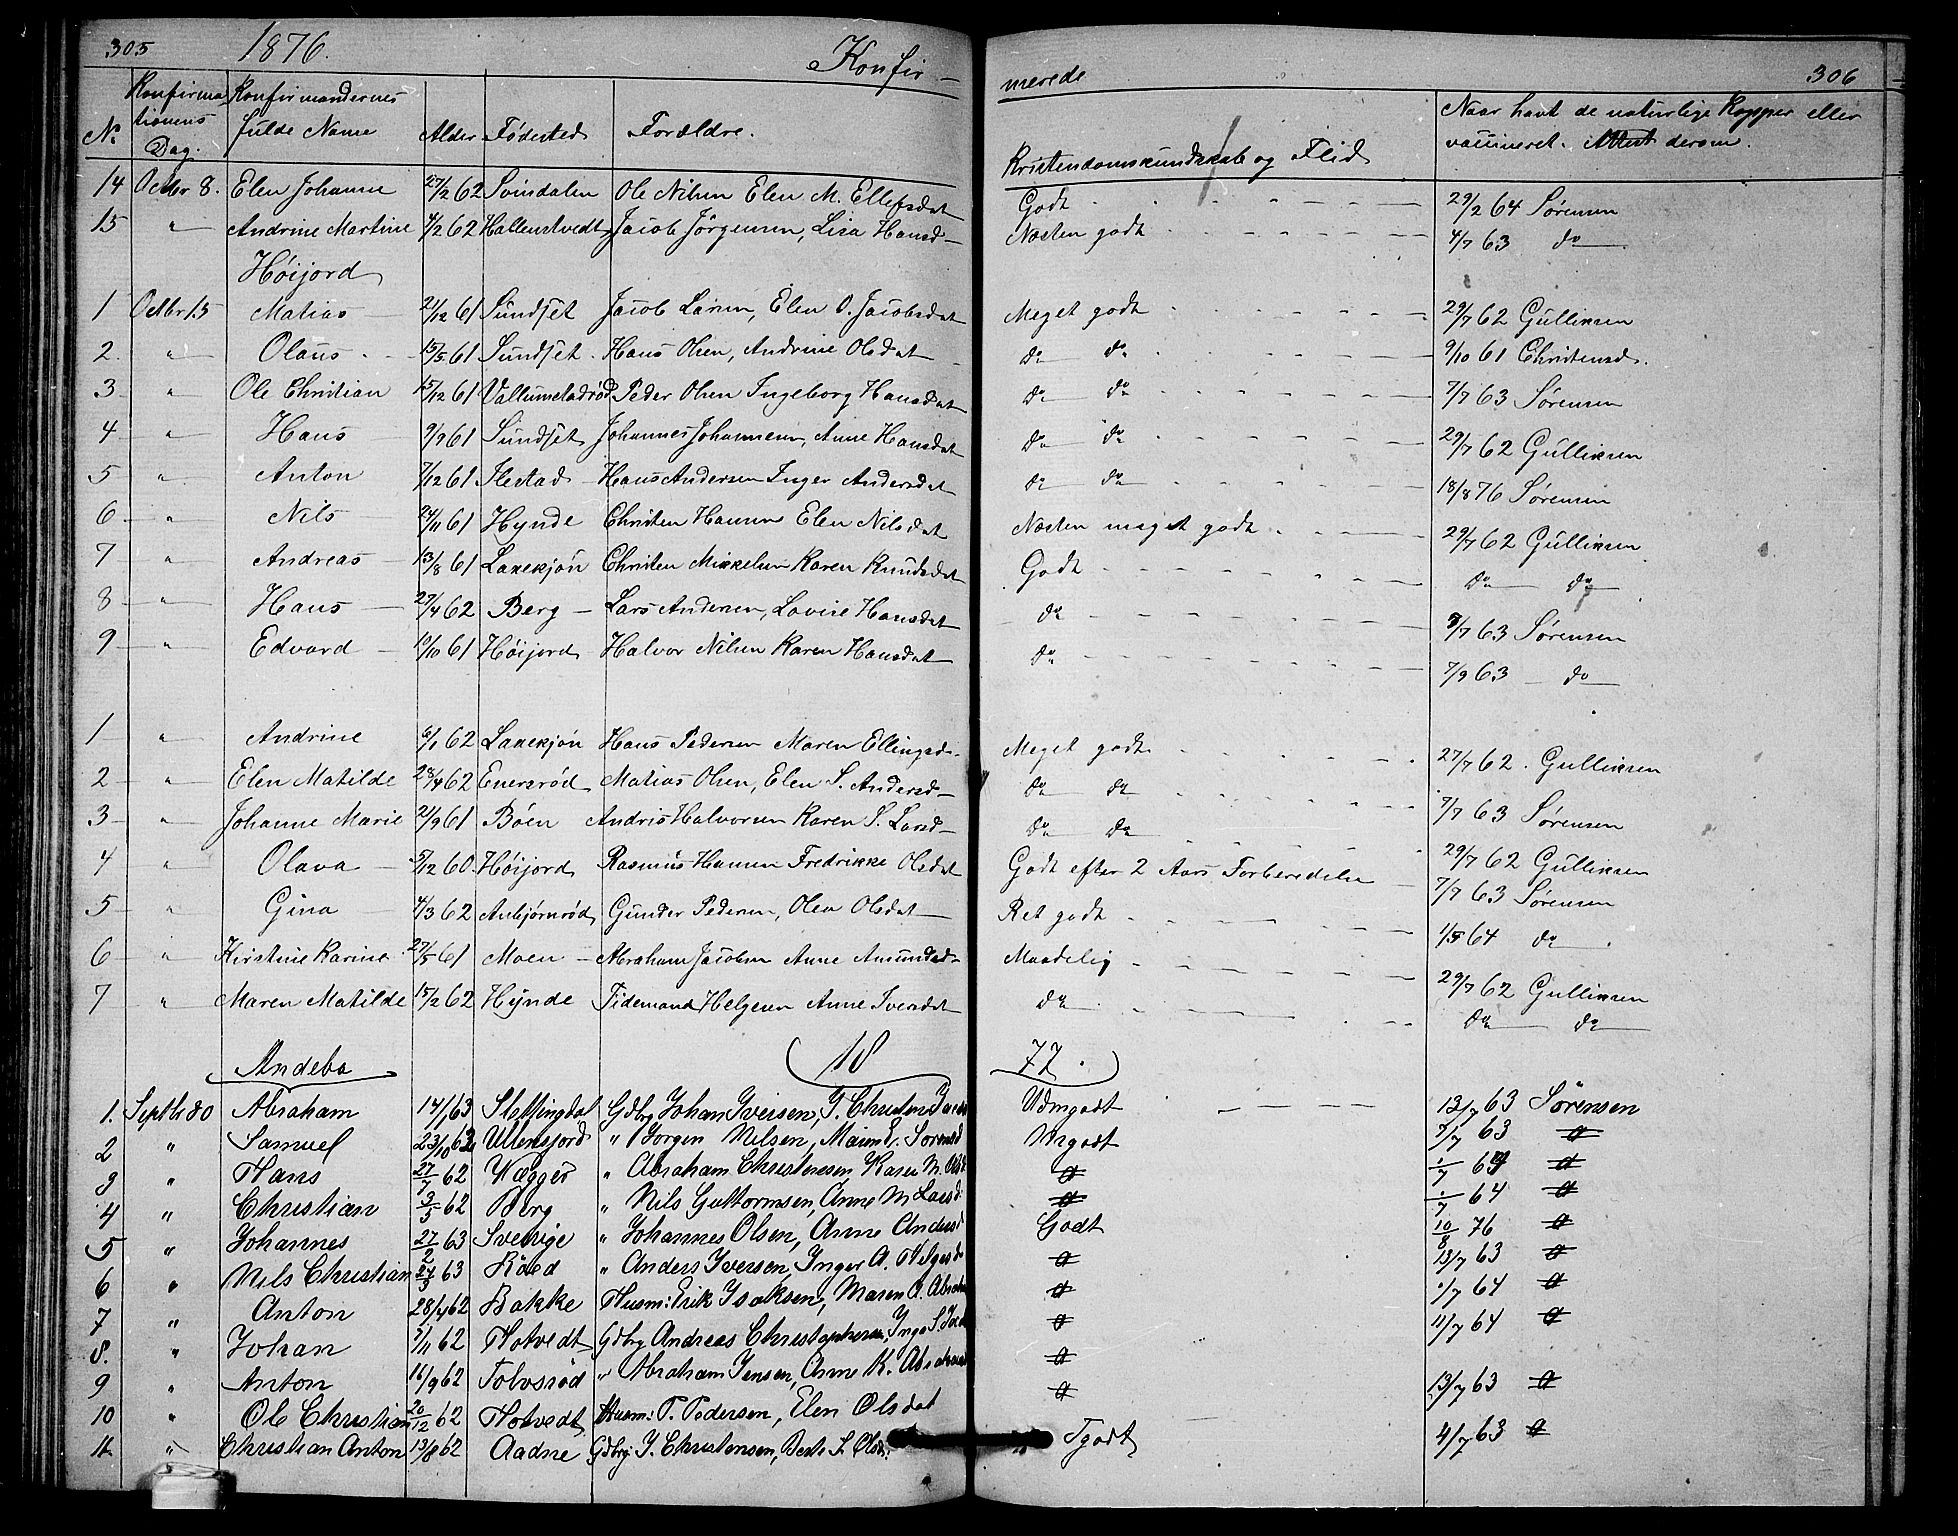 305 1876. Konfir-
merede 306
No Konfirma tionens Dag. Konfirmandernes fulde Name Alder Fødested Forældre. Kristendomskundskab og Flid Naar havt de naturlige Kopper eller vaccineret. Attest derom.
14 Octbr 8. Elen Johanne 27/2 62 Svindalen Ole Nilsen Elen M. Ellefsdat Godt 29/2 64 Sørensen
15 " Andrine Martine 4/2 62 Hallenstvedt Jacob Jørgensen, Lisa Hansd Næsten godt 4/7 63 do
Høijord
1 Octbr 15 Matias 21/12 61 Sundset Jacob Larsen, Elen O. Jacobsdat Meget godt 29/7 62 Gulliksen
2. " Olaus 15/5 61 Sundset Hans Olsen, Andrine Olsdat do do 9/10 61 Christensd.
3 " Ole Christian 15/12 61 Vallumstadrød Peder Olsen Ingeborg Hansdat do do 7/7 63 Sørensen
4 " Hans 9/9 61 Sundset Johannes Johannesen, Anne Hansdat do do 29/7 62 Gulliksen
5 " Anton 7/12 61 Ilestad Hans Andersen Inger Andersdat do do 18/8 76 Sørensen
6 " Nils 24/11 61 Hynde Christen Hansen Elen Nilsdat Næsten meget godt 29/7 62 Gulliksen
7 " Andreas 13/8 61 Laxekjøn Christen Mikkelsen Karen Knudsdat Godt do do
8 " Hans 27/4 62 Berg Lars Andersen, Lovise Hansdat do 3/7 63 Sørensen
9 " Edvard 10/10 61 Høijord Halvor Nilsen Karen Hansdat do 7/9 63 do
1 " Andrine 6/1 62 Laxekjøn Hans Pedersen Maren Ellingsd. Meget godt 27/7 62. Gulliksen
2 " Elen Matilde 28/4 62 Enersrød Matias Olsen, Elen S. Andersd do do 7/7 63 Sørensen
3 " Johanne Marie 21/9 61 Bøen Andris Halvorsen Karen S. Larsd do do 29/7 62 Gulliksen
4 " Olava 5/12 60. Høijord Rasmus Hansen Fredrikke Olsdat Godt efter 2 Aars Forberedelse 7/7 63 Sørensen
5 " Gina 4/3 62 Anbjørnrød Gunder Pedersen, Olea Olsdat Ret godt 1/5 64 do
6 " Kirstine Karine 27/5 61 Moen Abraham Jacobsen Anne Amundsd Maadelig 29/7 62 Gulliksen
7 " Maren Matilde 15/2 62 Hynde Tidemand Helgesen Anne Iversdat do do do
Andebo 18 77.
1. Septb 30 Abraham 14/1 63 Stettingdal Gdbrg Johan Iversen, J. Christens Udmgodt 13/7 63 Sørensen
2 " Samuel 23/10 62 Ullensjord " Jørgen Nilsen, Maren E. Sørensd Mgodt 7/7 63 do
3 " Hans 27/7 62 Vægger " Abraham Christensen Karen M. Olsd do 1/7 do
4 " Christian 3/5 62 Berg " Nils Guttormsen, Anne M Larsd. do 1/7 64 do
5 " Johannes 27/2 63 Sverige " Johannes Olsen, Anne Andersd Godt 10/8 76 do
6 " Nils Christian 63 Røed " Anders Iversen, Inger A. Helgesd do 13/7 63 do
7 " Anton 28/4 62 Bakke Husm: Erik Isaksen, Maren A. Abrah do 1/7 64 do
8. " Johan 5/11 62 Hotvedt Gdbrg Andreas Christophersen, Inge S. do 11/7 64 do
9 " Anton 16/9 62 Tolvsrød " Abraham Jensen, Anne K. Abraham do 13/7 63 do
10 " Ole Christian 20/12 62 Hotvedt Husm: P. Pedersen, Elen Olsdat do
11 " Christian Anton 13/8 62 Aadne Gdbrg J. Christensen, Berte S. Olsd. Tgodt 4/7 63 do